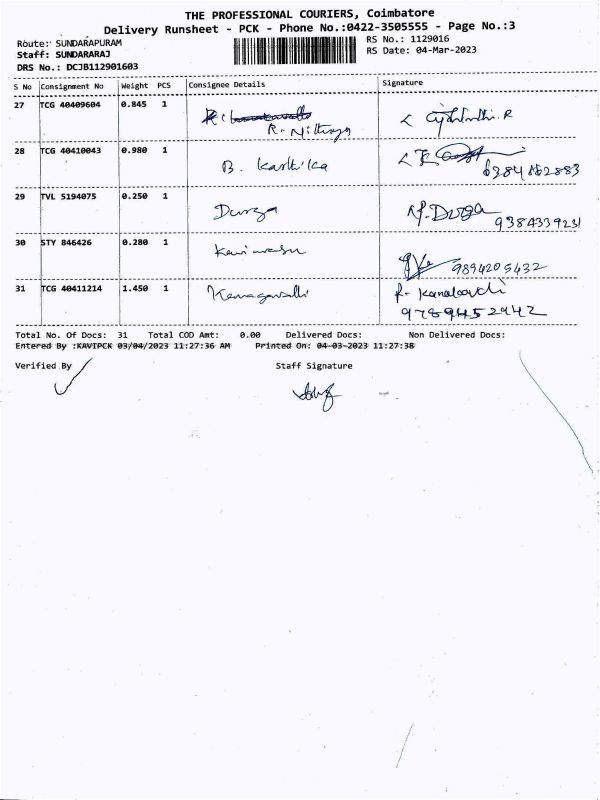 THE PROFESSIONAL COURIERS, Coimbatore
Delivery Runsheet - PCK - Phone No.:0422-3505555 - Page No.:3
Route: SUNDARAPURAM RS No.: 1129016
Staff: SUNDARARAJ RS Date: 04-Mar-2023
DRS No.: DCJB112901603
S No Consignment No Weight PCS Consignee Details Signature
27 TCG 40409604 0.845 1
R. Nithya
28 TCG 40410043 0.980 1
B. Karthika
29 TVL 5194075 0.250 1
Durga M. Durga
9384339231
30 STY 846426 0.280 1
9894205432
31 TCG 40411214 1.450 1
9789452942
Total No. Of Docs: 31 Total COD Amt: 0.00 Delivered Docs: Non Delivered Docs:
Entered By :KAVIPCK 03/04/2023 11:27:36 AM Printed On: 04-03-2023 11:27:38
Verified By Staff Signature